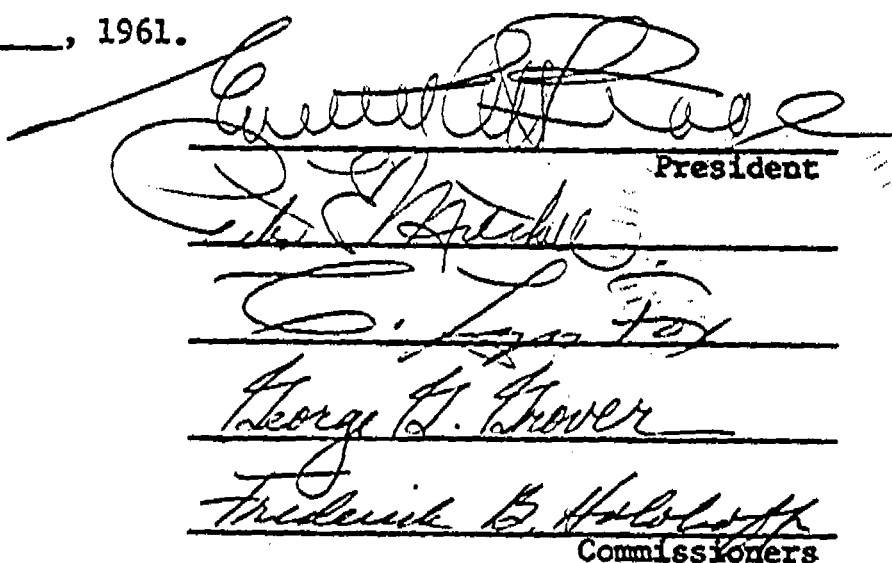 , 1961.
President
C. Lyn Fox
George G. Grover
Frederick B. Holoboff
Commissioners